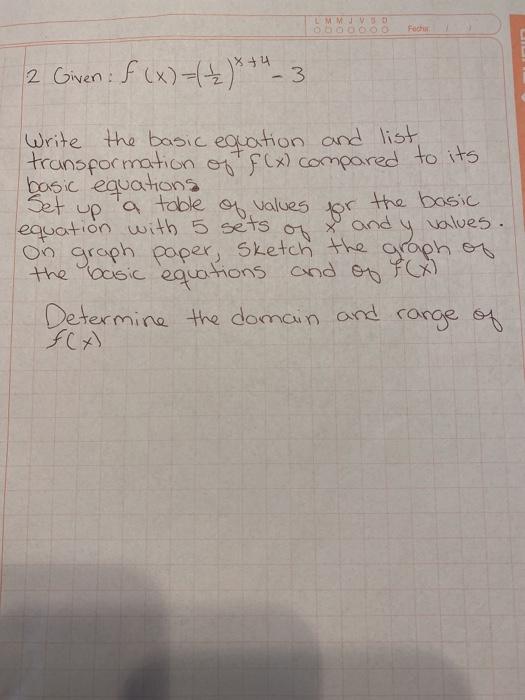 L M M J V S D
Fecha: / /
2 Given: f(x)=(1/2)^x+4 - 3
Write the basic equation and list
transpormation of f(x) compared to its
basic equations
Set up a table of values for the basic
equation with 5 sets of x and y values.
On graph paper, sketch the graph of
the basic equations and of f(x)
Determine the domain and range of
f(x)